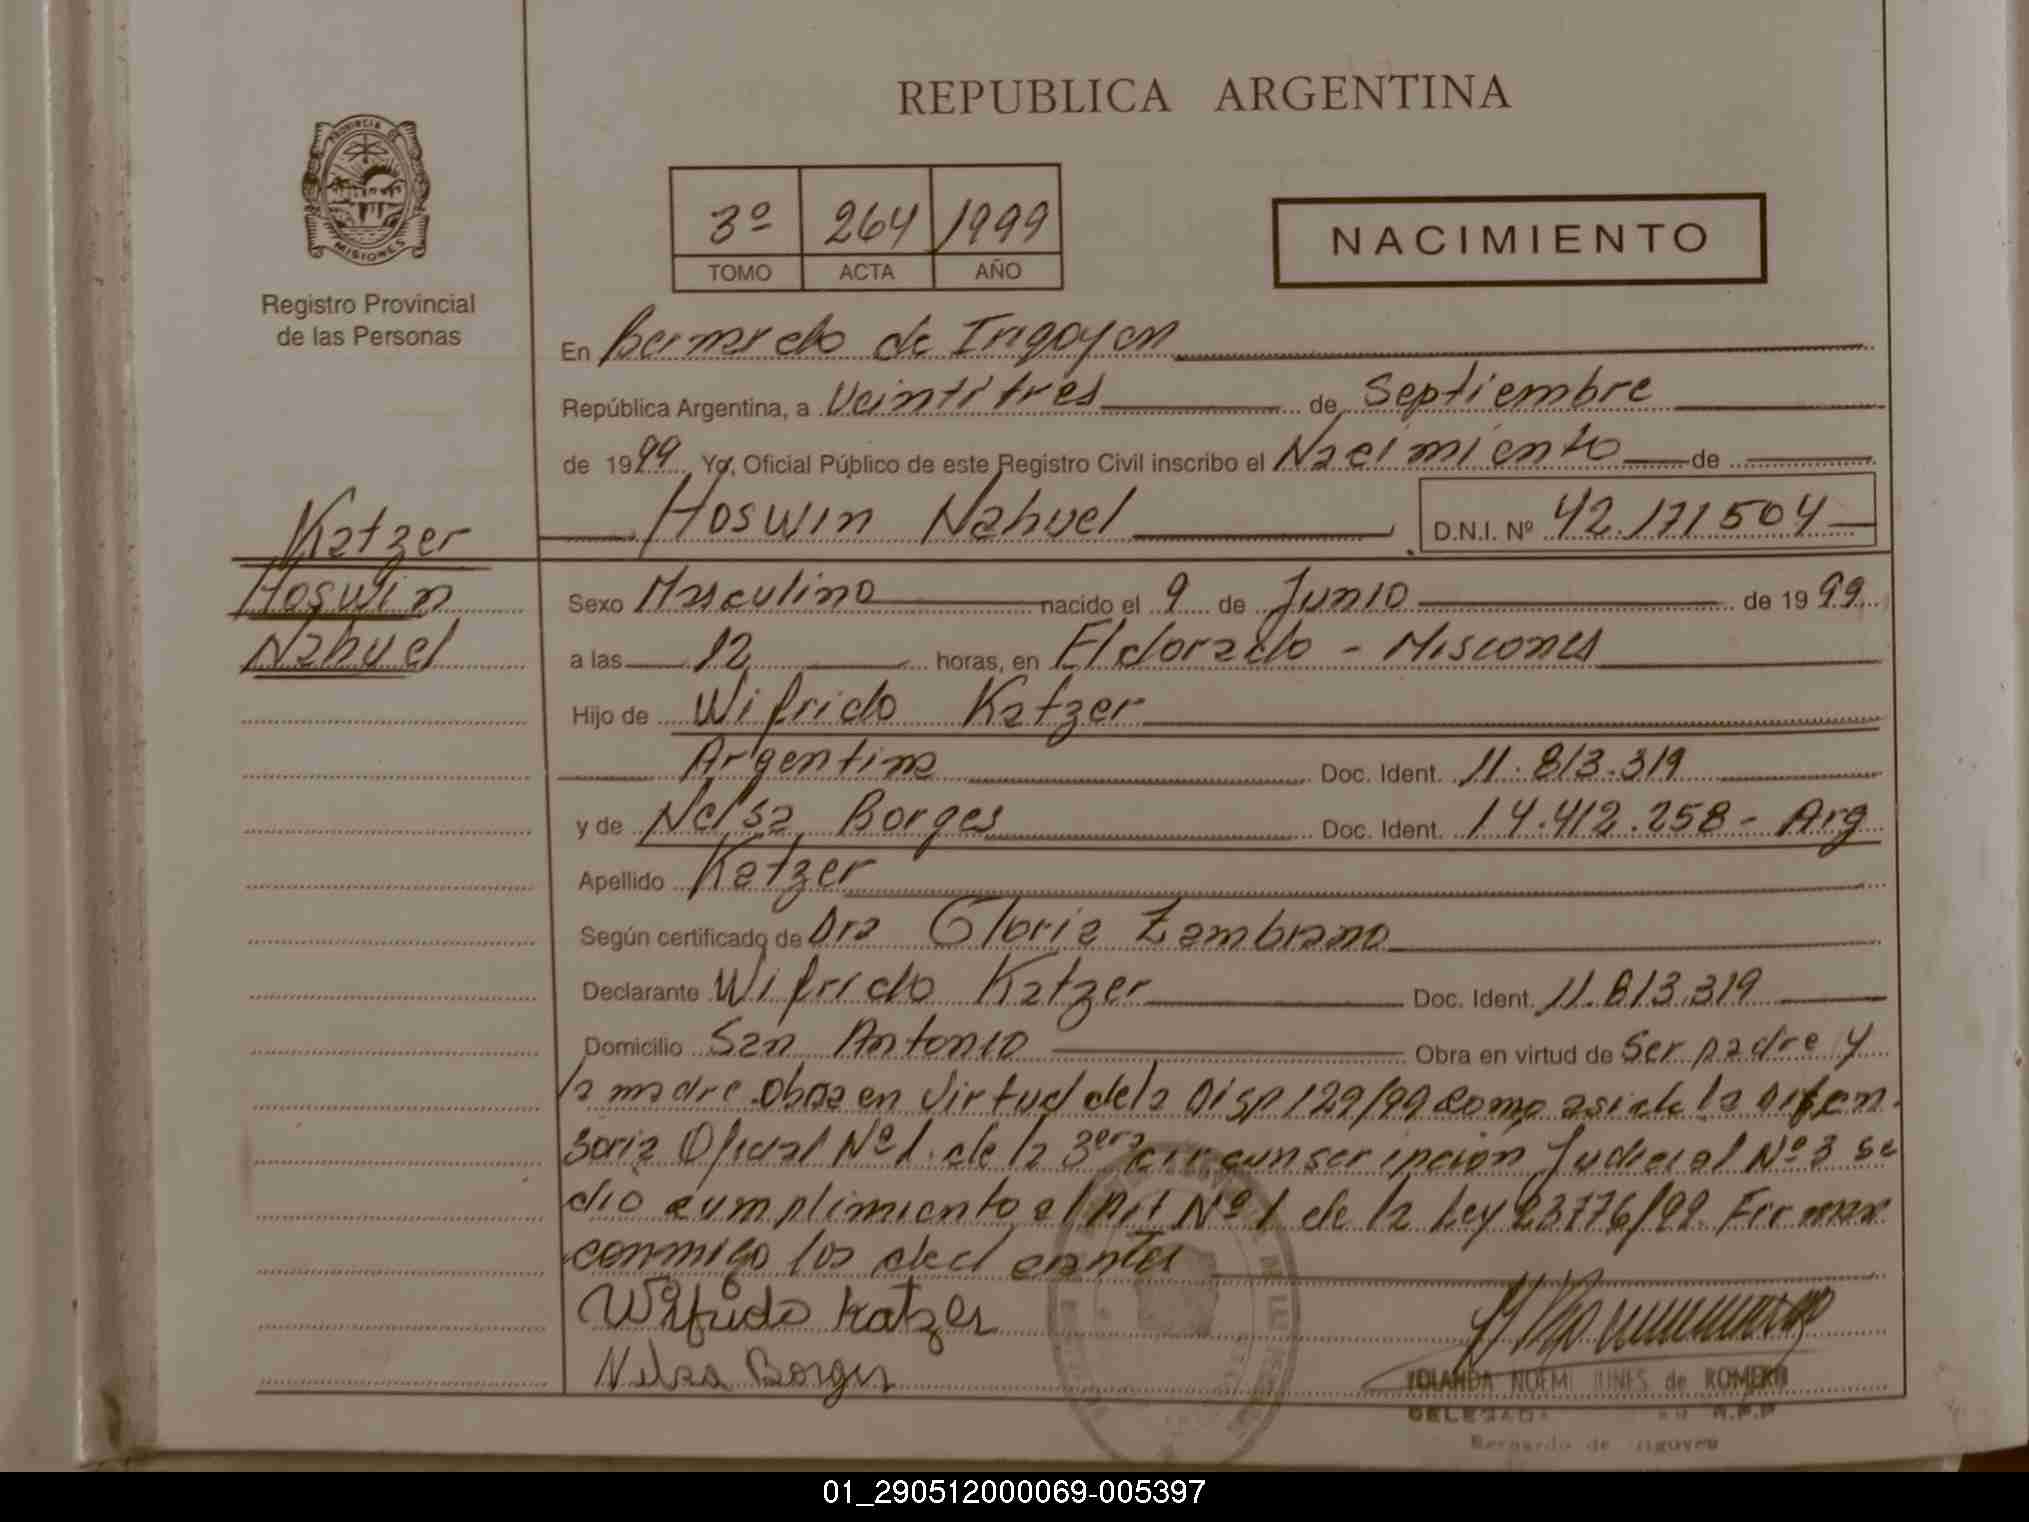 REPUBLICA ARGENTINA
PROVINCIA DE
MISIONES
Registro Provincial
de las Personas
3º 264 1999
TOMO ACTA AÑO
NACIMIENTO
En Bernardo de Irigoyen
República Argentina, a Veintitres de Septiembre
de 1999 Yo, Oficial Público de este Registro Civil inscribo el Nacimiento de
Hoswin Nahuel D.N.I. Nº 42.171504
Katzer
Hoswin
Nahuel
Sexo Masculino nacido el 9 de Junio de 1999
a las 12 horas, en Eldorado - Misiones
Hijo de Wifrido Katzer
Argentina Doc. Ident. 11.813.319
y de Nelsa Borges Doc. Ident. 14.412.258 - Arg
Apellido Katzer
Según certificado de Dra Gloria Zambrano
Declarante Wifrido Katzer Doc. Ident. 11.813.319
Domicilio San Antonio Obra en virtud de Ser padre y
la madre obra en virtud de la Disp 129/99 como asi de la Defen-
soria Oficial Nº 1 de la 3era circunscripcion Judicial Nº 3 se
dio cumplimiento al Art Nº 1 de la Ley 23776/99. Firman
conmigo los declarantes
Wilfrido Katzer
Nelsa Borges
YOLANDA NOEMI de ROMERO
DELEGADA R.P.P
Bernardo de Irigoyen
01_290512000069-005397